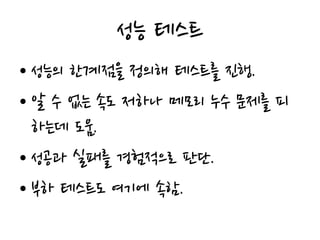 성능 테스트
• 성능의 한계점을 정의해 테스트를 진행.
• 알 수 없는 속도 저하나 메모리 누수 문제를 피
하는데 도움.
• 성공과 실패를 경험적으로 판단.
• 부하 테스트도 여기에 속함.